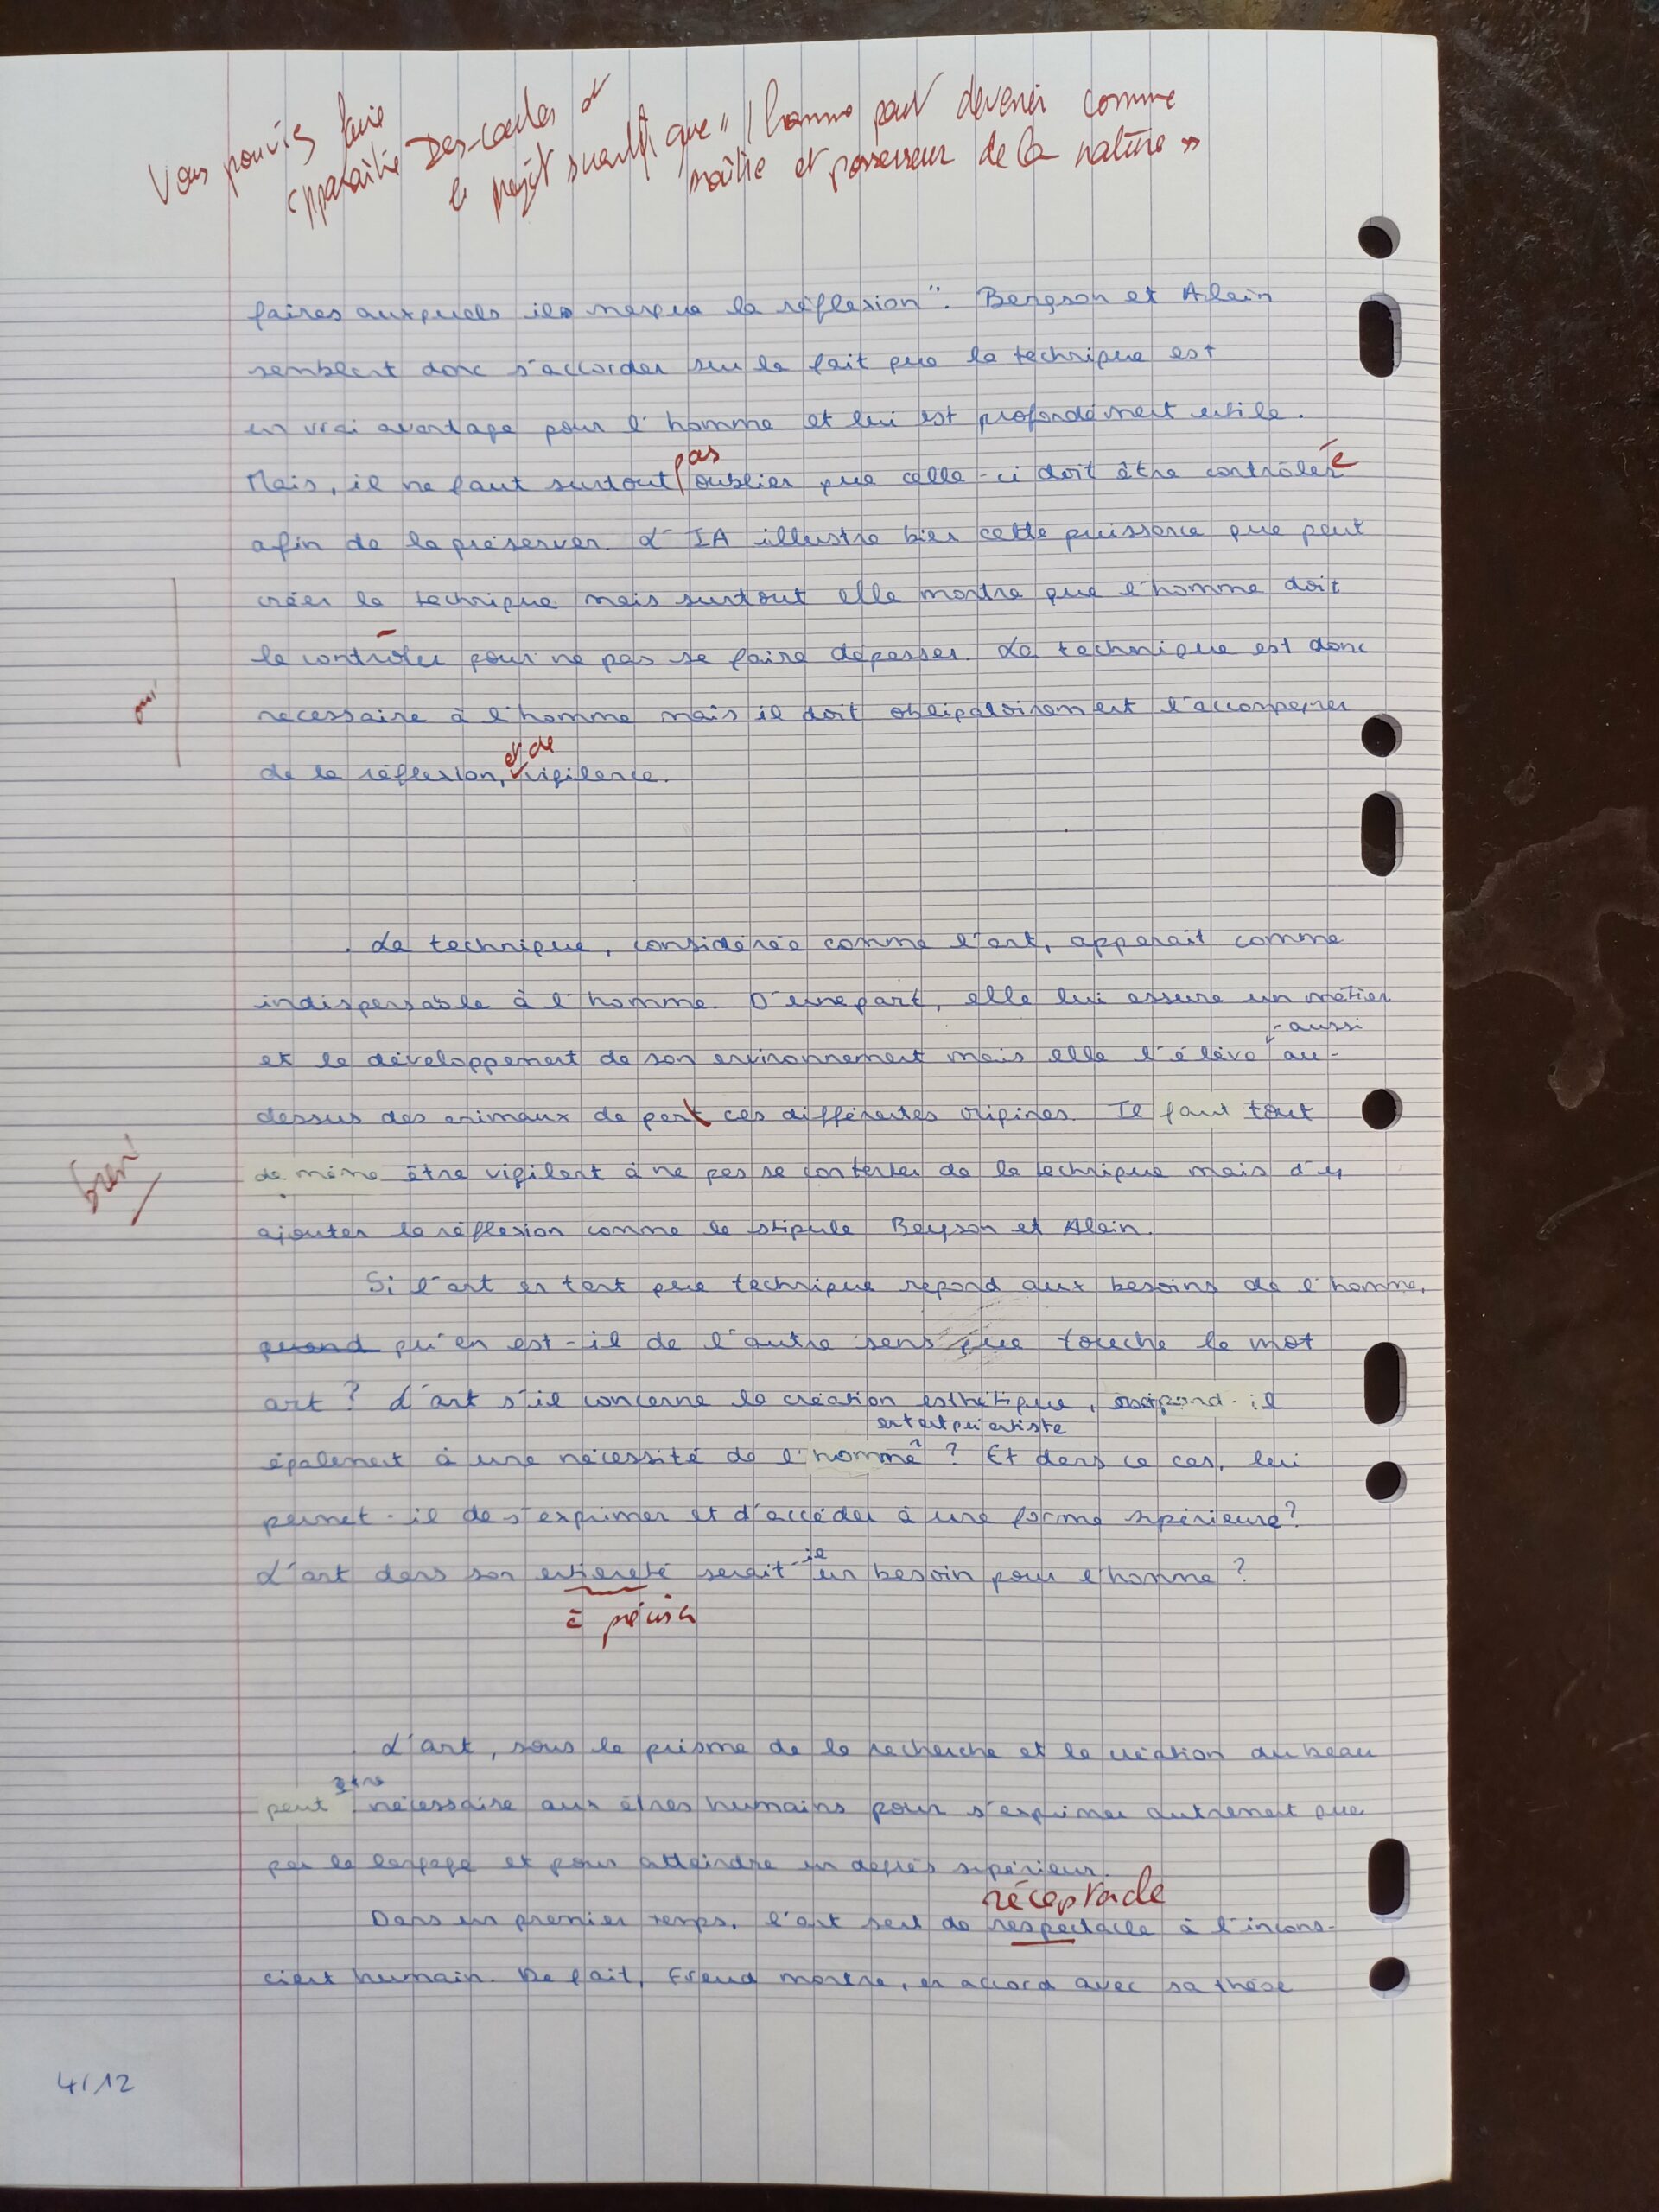 Vous pouviez faire
apparaître Descartes et
le projet scientifique "l'homme peut devenir comme
maître et possesseur de la nature »
faires auxquels il manque la réflexion". Bergson et Alain
semblent donc s'accorder sur le fait que la technique est
un vrai avantage pour l'homme et lui est profondément utile.
pas
Mais, il ne faut surtout oublier que celle-ci doit être contrôlée
afin de la préserver. L'IA illustre bien cette puissance que peut
créer la technique mais surtout elle montre que l'homme doit
la contrôler pour ne pas se faire dépasser. La technique est donc
oui
nécessaire à l'homme mais il doit obligatoirement l'accompagner
et de
de la réflexion, vigilance.
La technique, considérée comme l'art, apparait comme
indispensable à l'homme. D'une part, elle lui assure un métier
aussi
et le développement de son environnement mais elle l'élève au-
dessus des animaux de part ces différentes origines. Il faut tout
bien
de même être vigilant à ne pas se contenter de la technique mais d'y
ajouter la réflexion comme le stipule Bergson et Alain.
Si l'art en tant que technique repond aux besoins de l'homme,
quand qu'en est-il de l'autre sens que touche le mot
art ? L'art s'il concerne la création esthétique, répond-il
en tant qu'artiste
également à une nécessité de l'homme ? Et dans ce cas, lui
permet-il de s'exprimer et d'accéder à une forme supérieure ?
-il
L'art dans son entiereté serait un besoin pour l'homme ?
à préciser
L'art, sous le prisme de la recherche et la création du beau
être
peut nécessaire aux êtres humains pour s'exprimer autrement que
par le langage et pour atteindre un degrés supérieur.
réceptacle
Dans un premier temps, l'art sert de respectacle à l'incons-
cient humain. De fait, Freud montre, en accord avec sa thèse
4/12